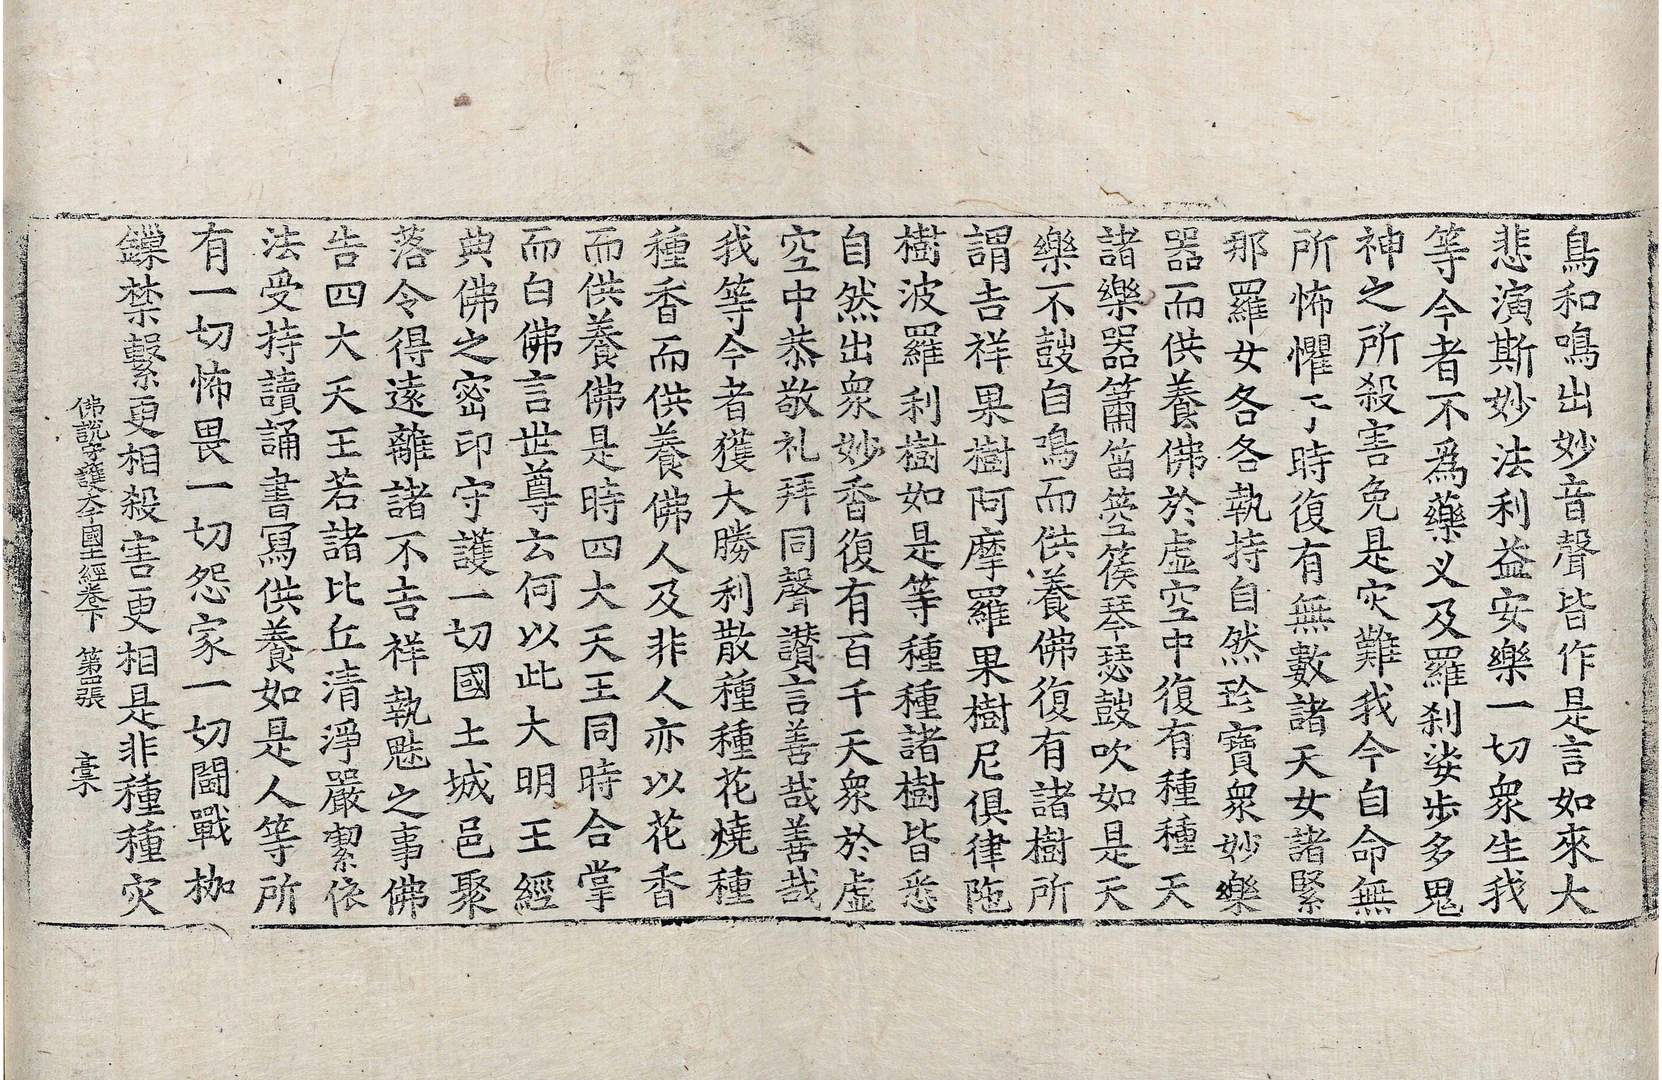 鳥和鳴出妙音聲皆作是言如來大
悲演斯妙法利益安樂一切衆生我
等今者不爲藥义及羅刹娑步多鬼
神之所殺害免是灾難我今自命無
所怖懼亍時復有無數諸天女諸緊
那羅女各各執持自然珍寶衆妙樂
器而供養佛於虛空中復有種種天
諸樂器簫笛箜篌琴瑟鼓吹如是天
樂不鼓自鳴而供養佛復有諸樹所
謂吉祥果樹阿摩羅果樹尼俱律陁
樹波羅利樹如是等種種諸樹皆悉
自然出衆妙香復有百千天衆於虛
空中恭敬礼拜同聲讃言善哉善哉
我等今者獲大勝利散種種花燒種
種香而供養佛人及非人亦以花香
而供養佛是時四大天王同時合掌
而白佛言世尊云何以此大明王經
典佛之密印守護一切國土城邑聚
落令得遠離諸不吉祥執魅之事佛
告四大天王若諸比丘清淨嚴絜依
法受持讀誦書寫供養如是人等所
有一切怖畏一切怨家一切鬪戰枷
鏁禁繫更相殺害更相是非種種灾
佛說守護大千國土經卷下 第四張 槀